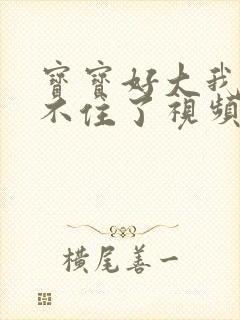 寶寶好大我
不住了視頻
橫尾善一